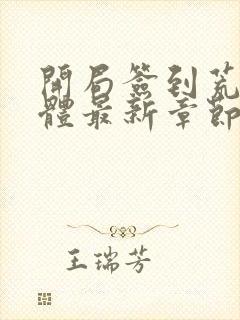 開局簽到荒
體最新章節
王瑞芳